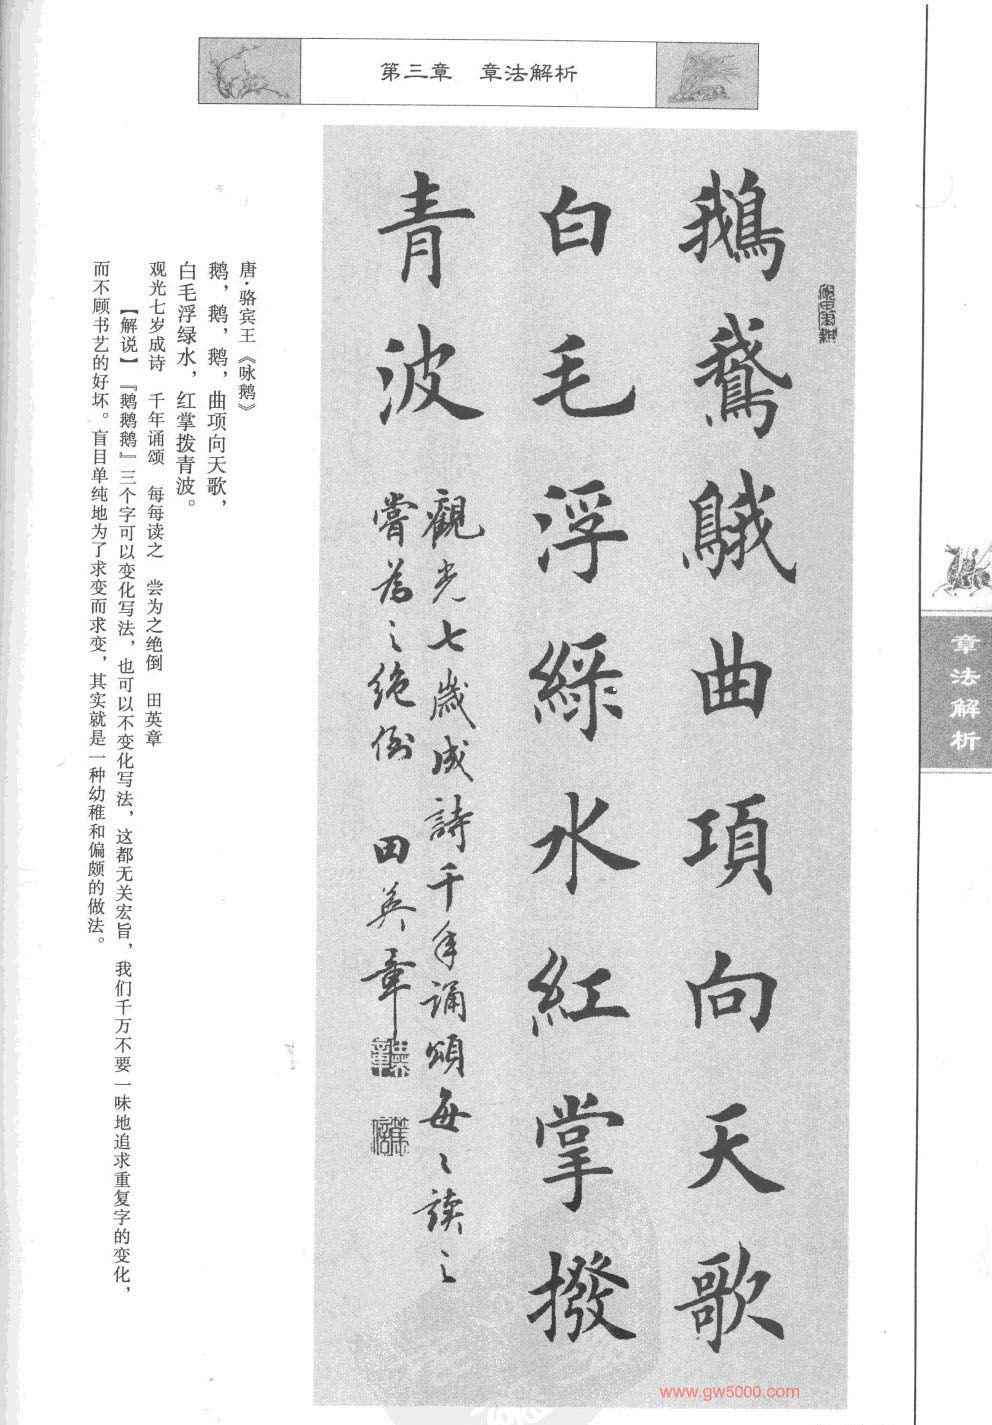 第三章 章法解析
鵝鵞䳘曲項向天歌
白毛浮綠水紅掌撥
青波
觀光七歲成詩千年誦頌每々讀之
嘗為之絕倒 田英章
唐·骆宾王《咏鹅》
鹅，鹅，鹅，曲项向天歌，
白毛浮绿水，红掌拨青波。
观光七岁成诗 千年诵颂 每每读之 尝为之绝倒 田英章
【解说】『鹅鹅鹅』三个字可以变化写法，也可以不变化写法，这都无关宏旨，我们千万不要一味地追求重复字的变化，
而不顾书艺的好坏。盲目单纯地为了求变而求变，其实就是一种幼稚和偏颇的做法。
章法解析
www.gw5000.com